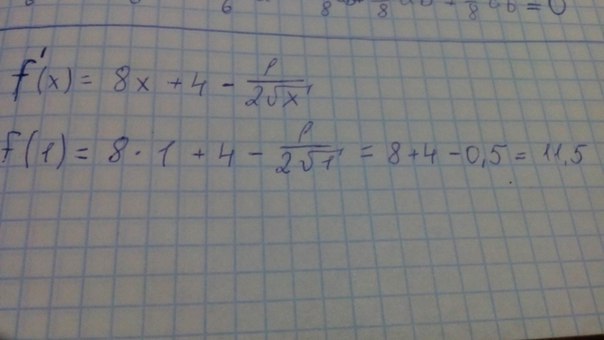 f'(x) = 8x + 4 - 1/(2√x)
f(1) = 8 · 1 + 4 - 1/(2√1) = 8 + 4 - 0,5 = 11,5